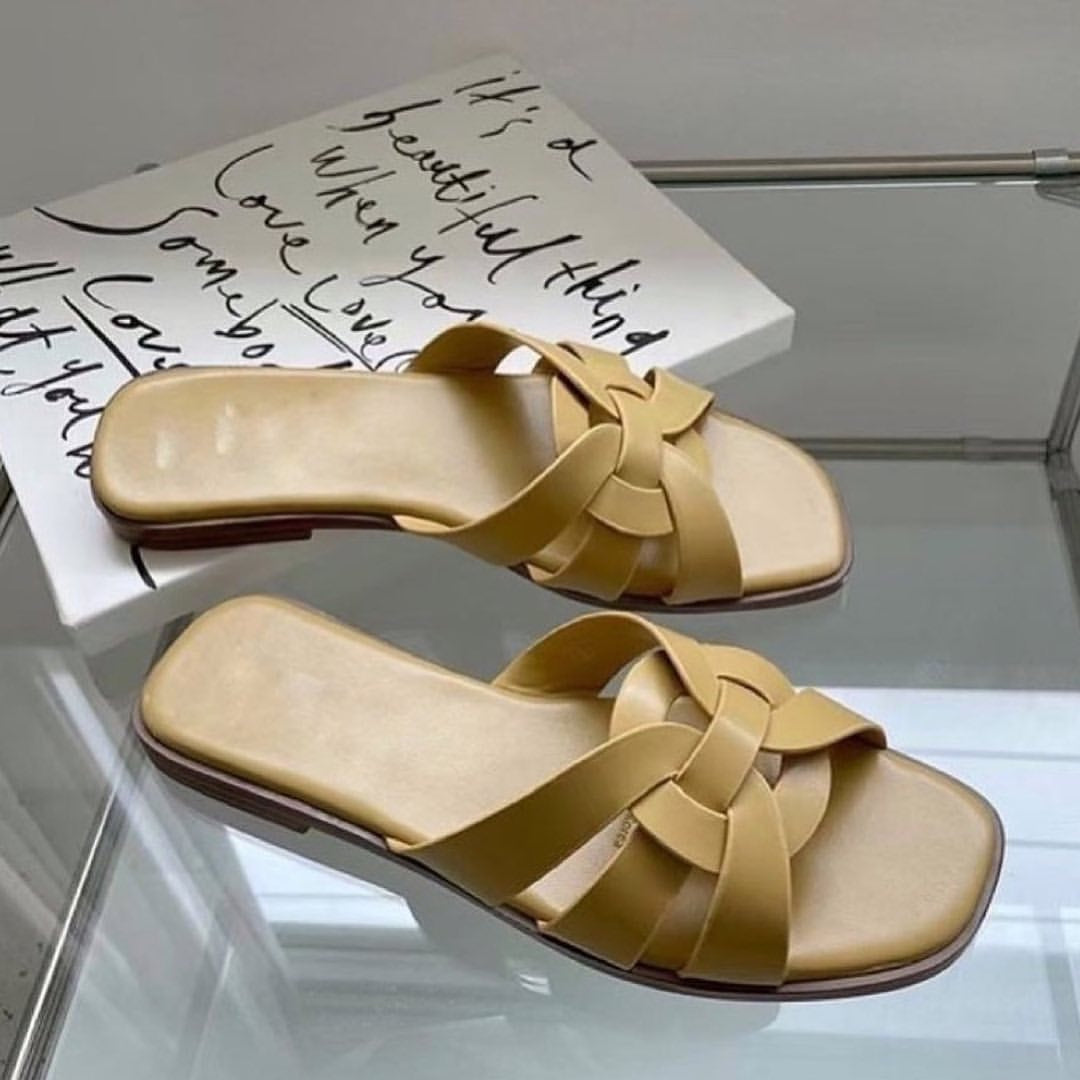 it's a
beautiful thing
When you
Love Love
Somebo
Love
what you
orea